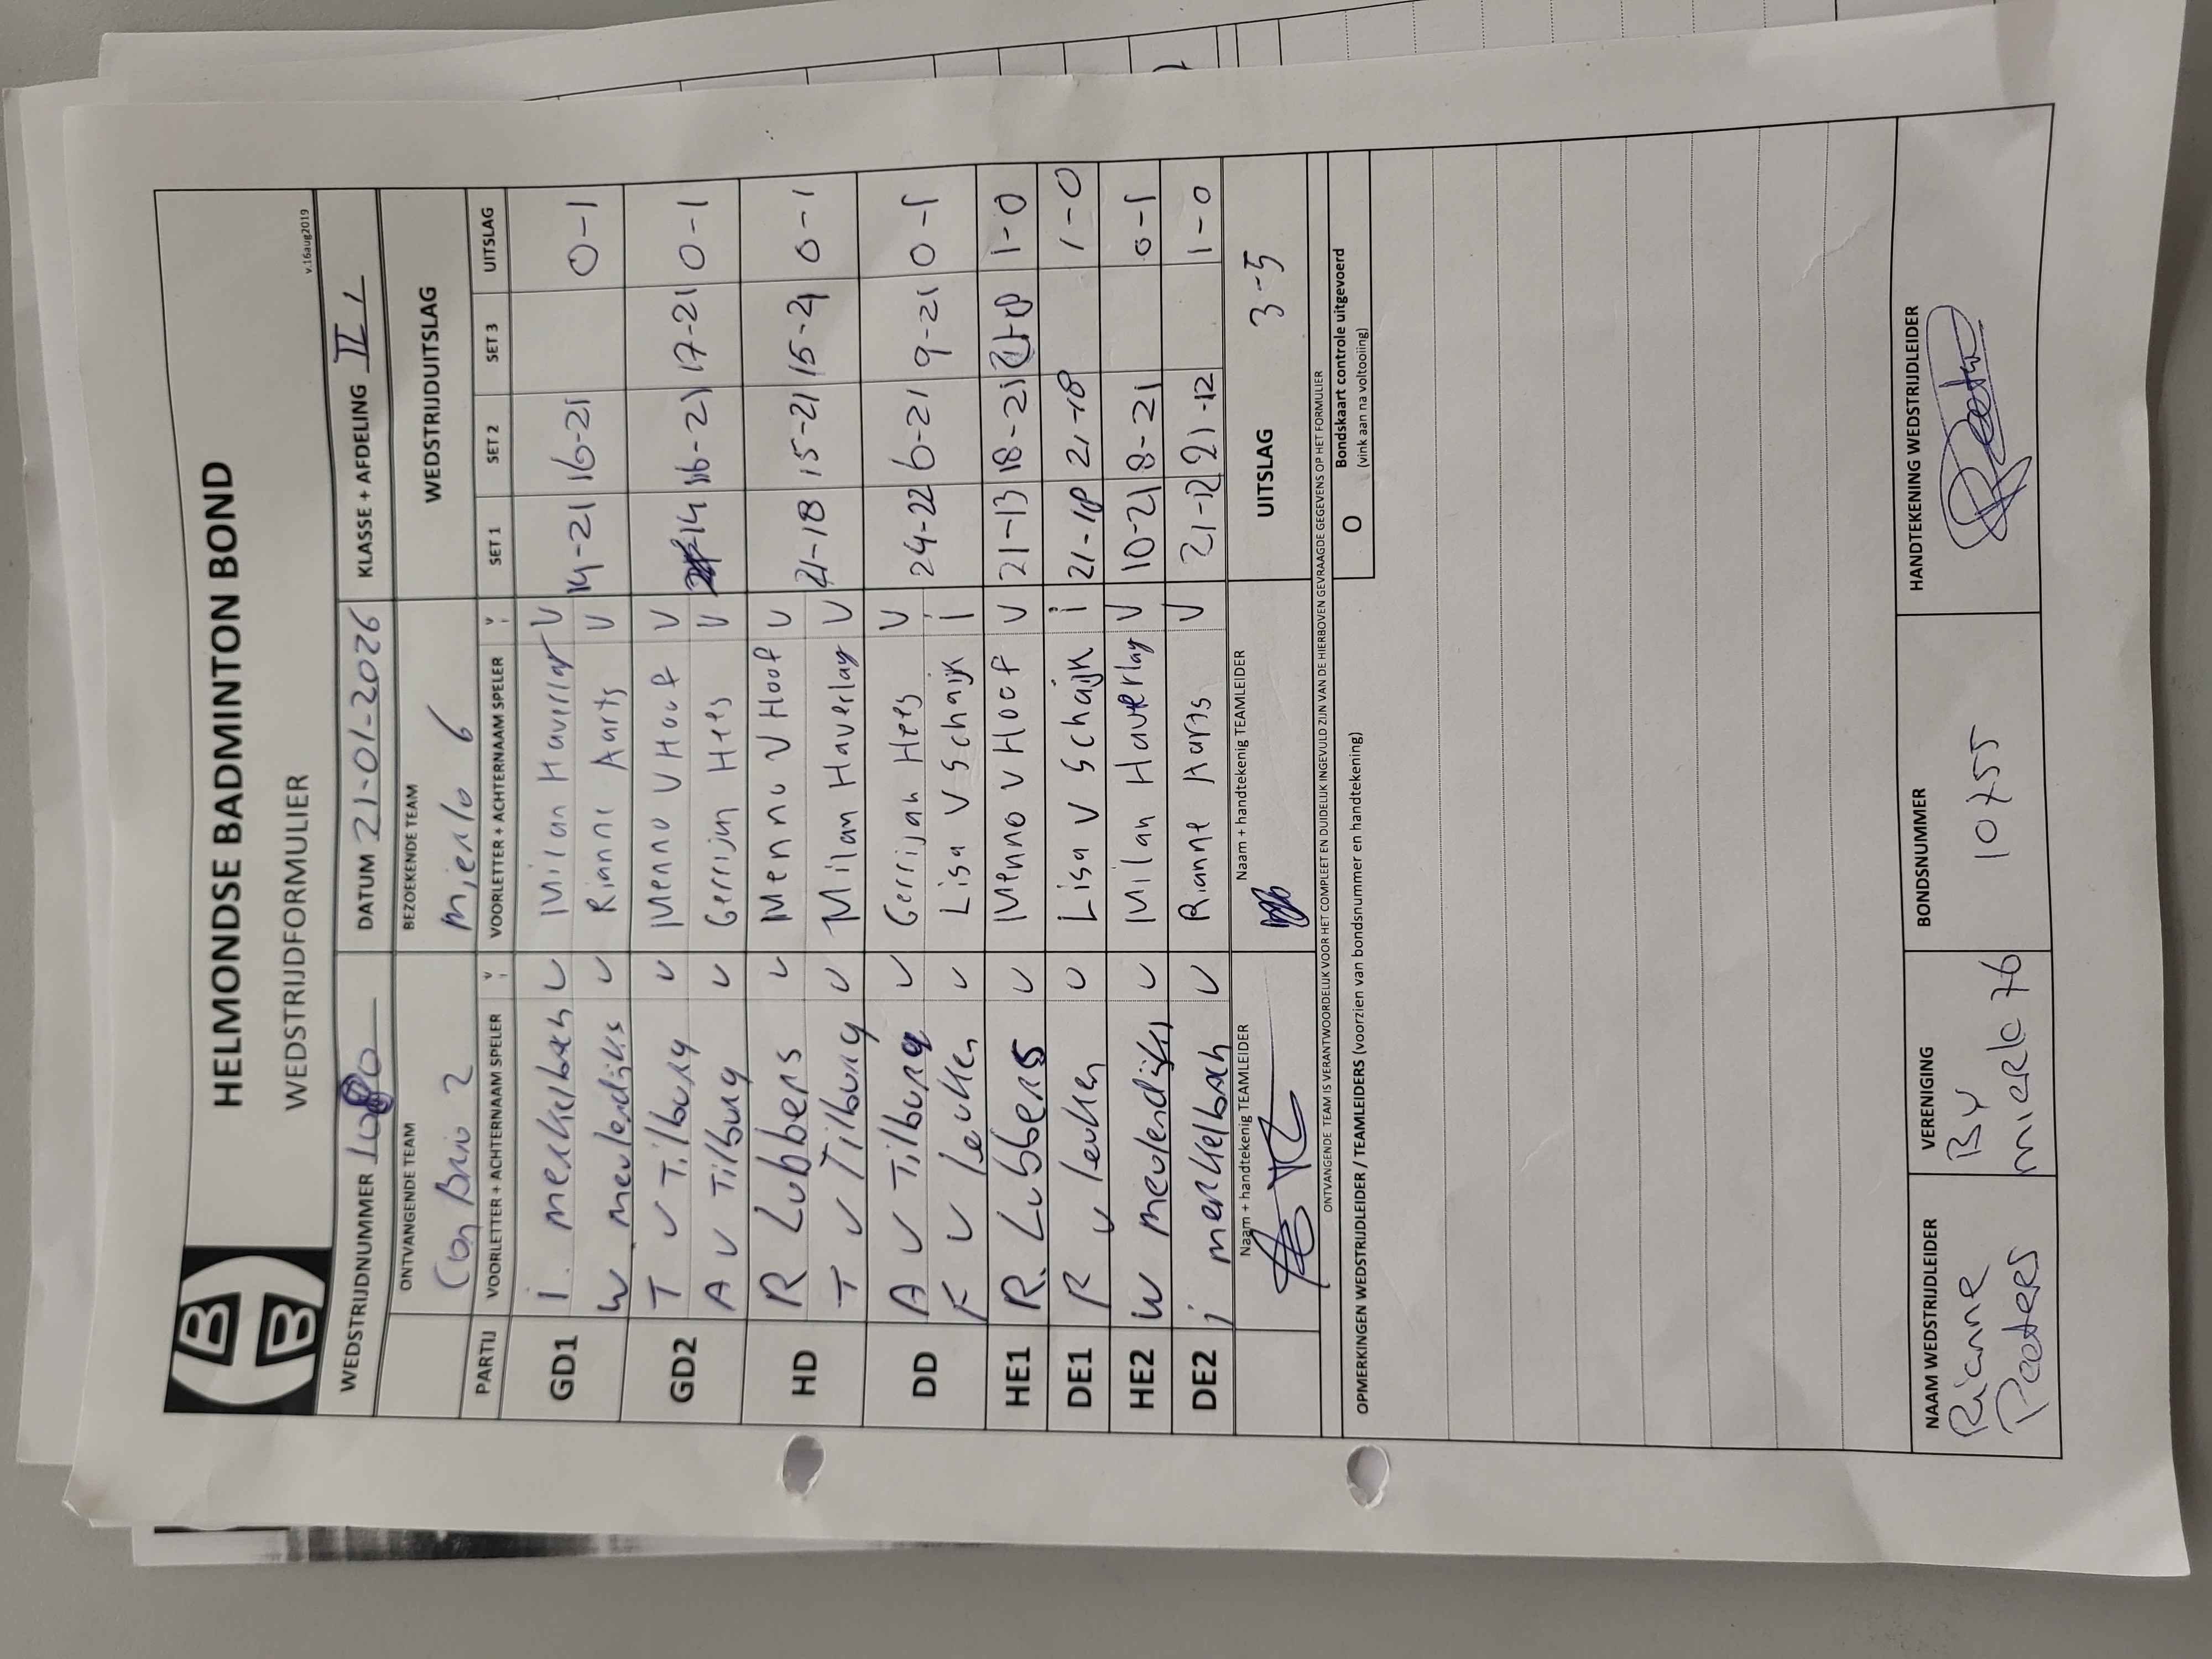 HELMONDSE BADMINTON BOND
WEDSTRIJDFORMULIER
v.16aug2019
WEDSTRIJDNUMMER DATUM 21-01-2026 KLASSE + AFDELING II 1
ONTVANGENDE TEAM BEZOEKENDE TEAM WEDSTRIJDUITSLAG
Con Brio 2 Mierlo 6
PARTIJ VOORLETTER + ACHTERNAAM SPELER V I VOORLETTER + ACHTERNAAM SPELER V I SET 1 SET 2 SET 3 UITSLAG
GD1 I. merkelbach V Milan Haverlag V 14-21 16-21 0-1
W meulendijks V Rianne Aarts V
GD2 T v Tilburg V Menno V Hoof V 21-14 16-21 17-21 0-1
A v Tilburg V Gerrijan Hees V
HD R Lubbers V Menno V Hoof V 21-18 15-21 15-21 0-1
T v Tilburg V Milan Haverlag V
DD A v Tilburg V Gerrijan Hees V 24-22 6-21 9-21 0-1
F v leuken V Lisa V Schaijk i
HE1 R. Lubbers V Menno v Hoof V 21-13 18-21 1-0
DE1 F v leuken V Lisa V Schaijk i 21-18 21-18 1-0
HE2 W meulendijks V Milan Haverlag V 10-21 8-21 0-1
DE2 j merkelbach V Rianne Aarts V 21-12 21-12 1-0
Naam + handtekenig TEAMLEIDER Naam + handtekenig TEAMLEIDER UITSLAG 3-5
ONTVANGENDE TEAM IS VERANTWOORDELIJK VOOR HET COMPLEET EN DUIDELIJK INGEVULD ZIJN VAN DE HIERBOVEN GEVRAAGDE GEGEVENS OP HET FORMULIER
OPMERKINGEN WEDSTRIJDLEIDER / TEAMLEIDERS (voorzien van bondsnummer en handtekening)
O Bondskaart controle uitgevoerd
(vink aan na voltooiing)
NAAM WEDSTRIJDLEIDER VERENIGING BONDSNUMMER HANDTEKENING WEDSTRIJDLEIDER
Rianne BV 10755
Peeters Mierlo 76